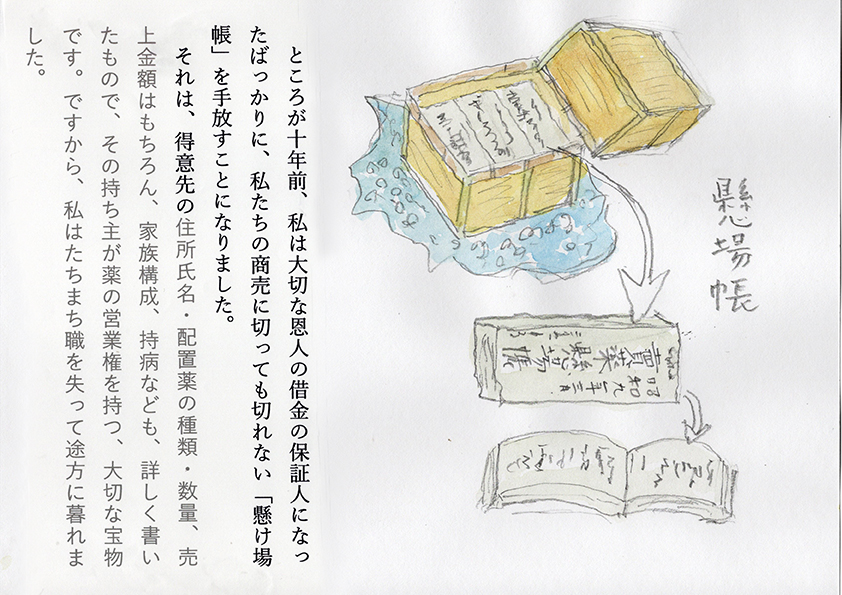 ところが十年前、私は大切な恩人の借金の保証人になっ
たばっかりに、私たちの商売に切っても切れない「懸け場
帳」を手放すことになりました。
それは、得意先の住所氏名・配置薬の種類・数量、売
上金額はもちろん、家族構成、持病なども、詳しく書い
たもので、その持ち主が薬の営業権を持つ、大切な宝物
です。ですから、私はたちまち職を失って途方に暮れま
した。
懸場帳
賣薬
懸場帳